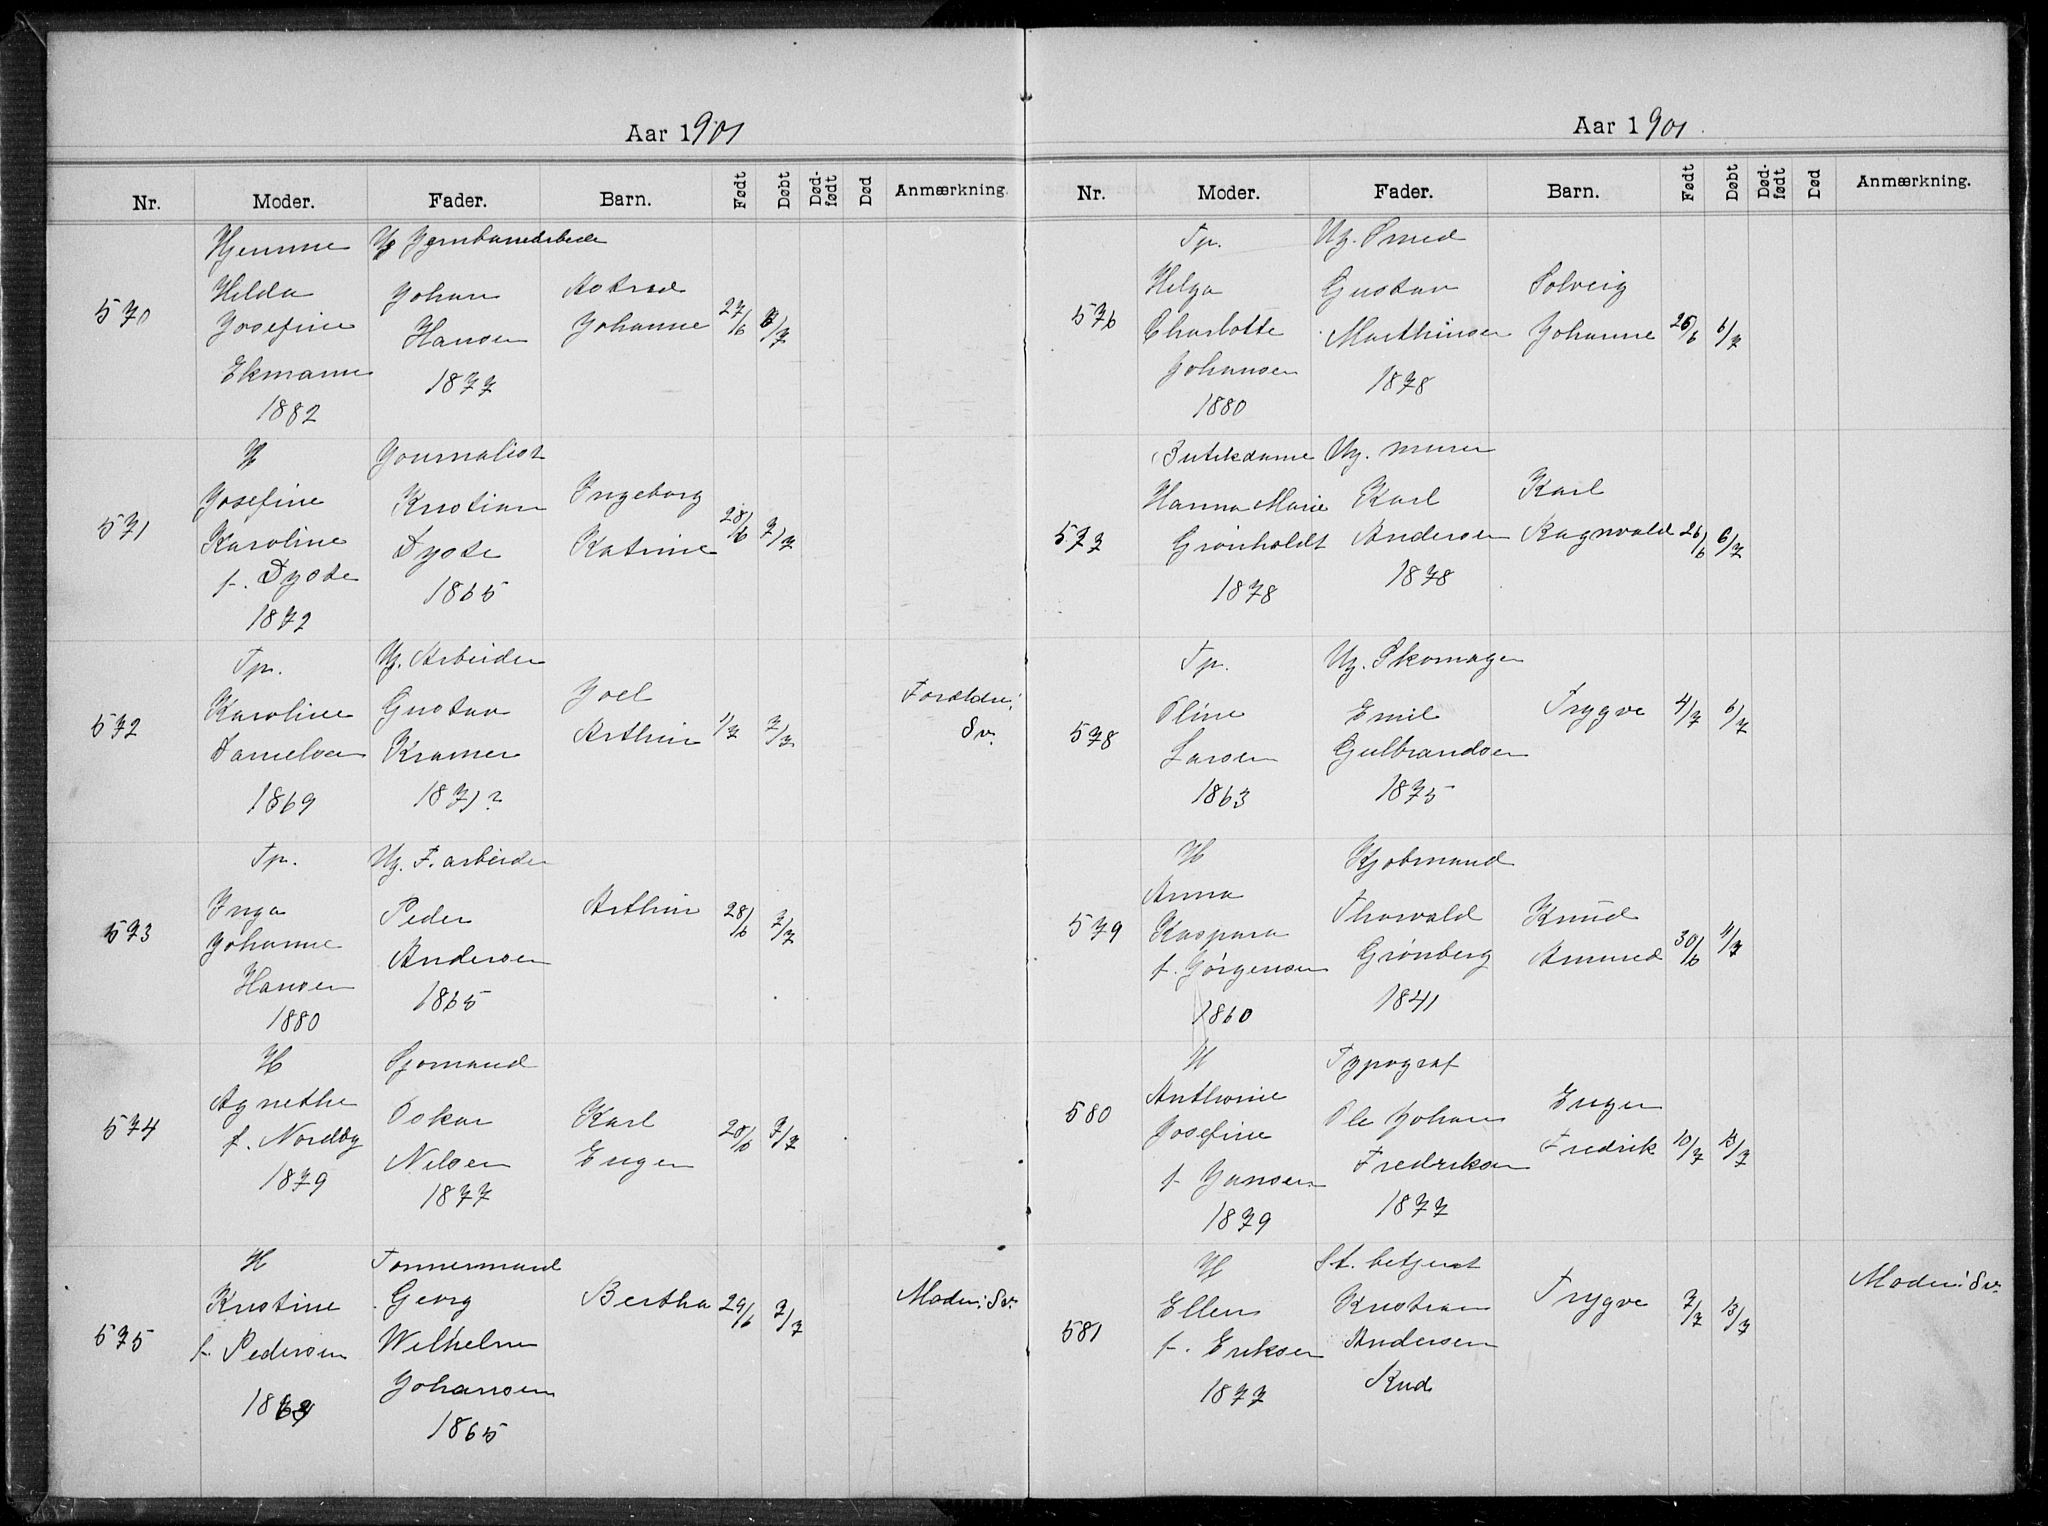 Aar 1901
Nr. Moder. Fader. Barn. Født Døbt Død-født Død Anmærkning.
570
Hjemme
Hilda
Josefine
Ekmann
1882
Ug Jernbanearbeide
Johan
Hansen
1877
Astrid
Johanne
27/6 3/7
571
H
Josefine
Karoline
f. Dyste
1872
Journalist
Kristian
Dyste
1865
Ingeborg
Katrine
28/6 7/7
572
Tp.
Karoline
Danielsen
1869
Ug. Arbeider
Gustav
Kramer
1871?
Joel
Arthur
1/7 7/7
Forældre:
Sv.
573
Tp.
Inga
Johanne
Hansen
1880
Ug. F. arbeider
Peder
Andersen
1865
Arthur
28/6 7/7
574
H
Agnethe
f. Nordby
1879
Sjømand
Oskar
Nilsen
1877
Karl
Eugen
28/6 7/7
575
H
Kristine
f. Pedersen
Tømmermand
Georg
Wilhelm
Johansen
1865
Bertha
29/6 7/7
Moder: Sv.
Aar 1901.
Nr. Moder. Fader. Barn. Født Døbt Død-født Død Anmærkning.
576
Tp.
Helga
Charlotte
Johansen
1880
Ug. Smed
Gustav
Marthinsen
1878
Solveig
Johanne
26/6 6/7
577
Butikdame
Hanna Marie
Grønholdt
1878
Ug. murer
Karl
Andersen
1878
Karl
Ragnvald
26/6 6/7
578
Tp.
Oline
Larsen
1863
Ug. Skomager
Emil
Gulbrandsen
1875
Trygve
4/7 6/7
579
H
Anna
Kaspara
f. Jørgensen
1860
Kjøbmand
Thorvald
Grønberg
1841
Knud
Amund
30/6 4/7
580
H
Anthonie
Josefine
f. Jansen
1879
Typograf
Ole Johan
Fredriksen
1877
Eugen
Fredrik
10/7 13/7
581
H
Ellen
f. Eriksen
1877
St. betjent
Kristian
Andersen
Rud
Trygve
7/7 13/7
Moder: Sv.